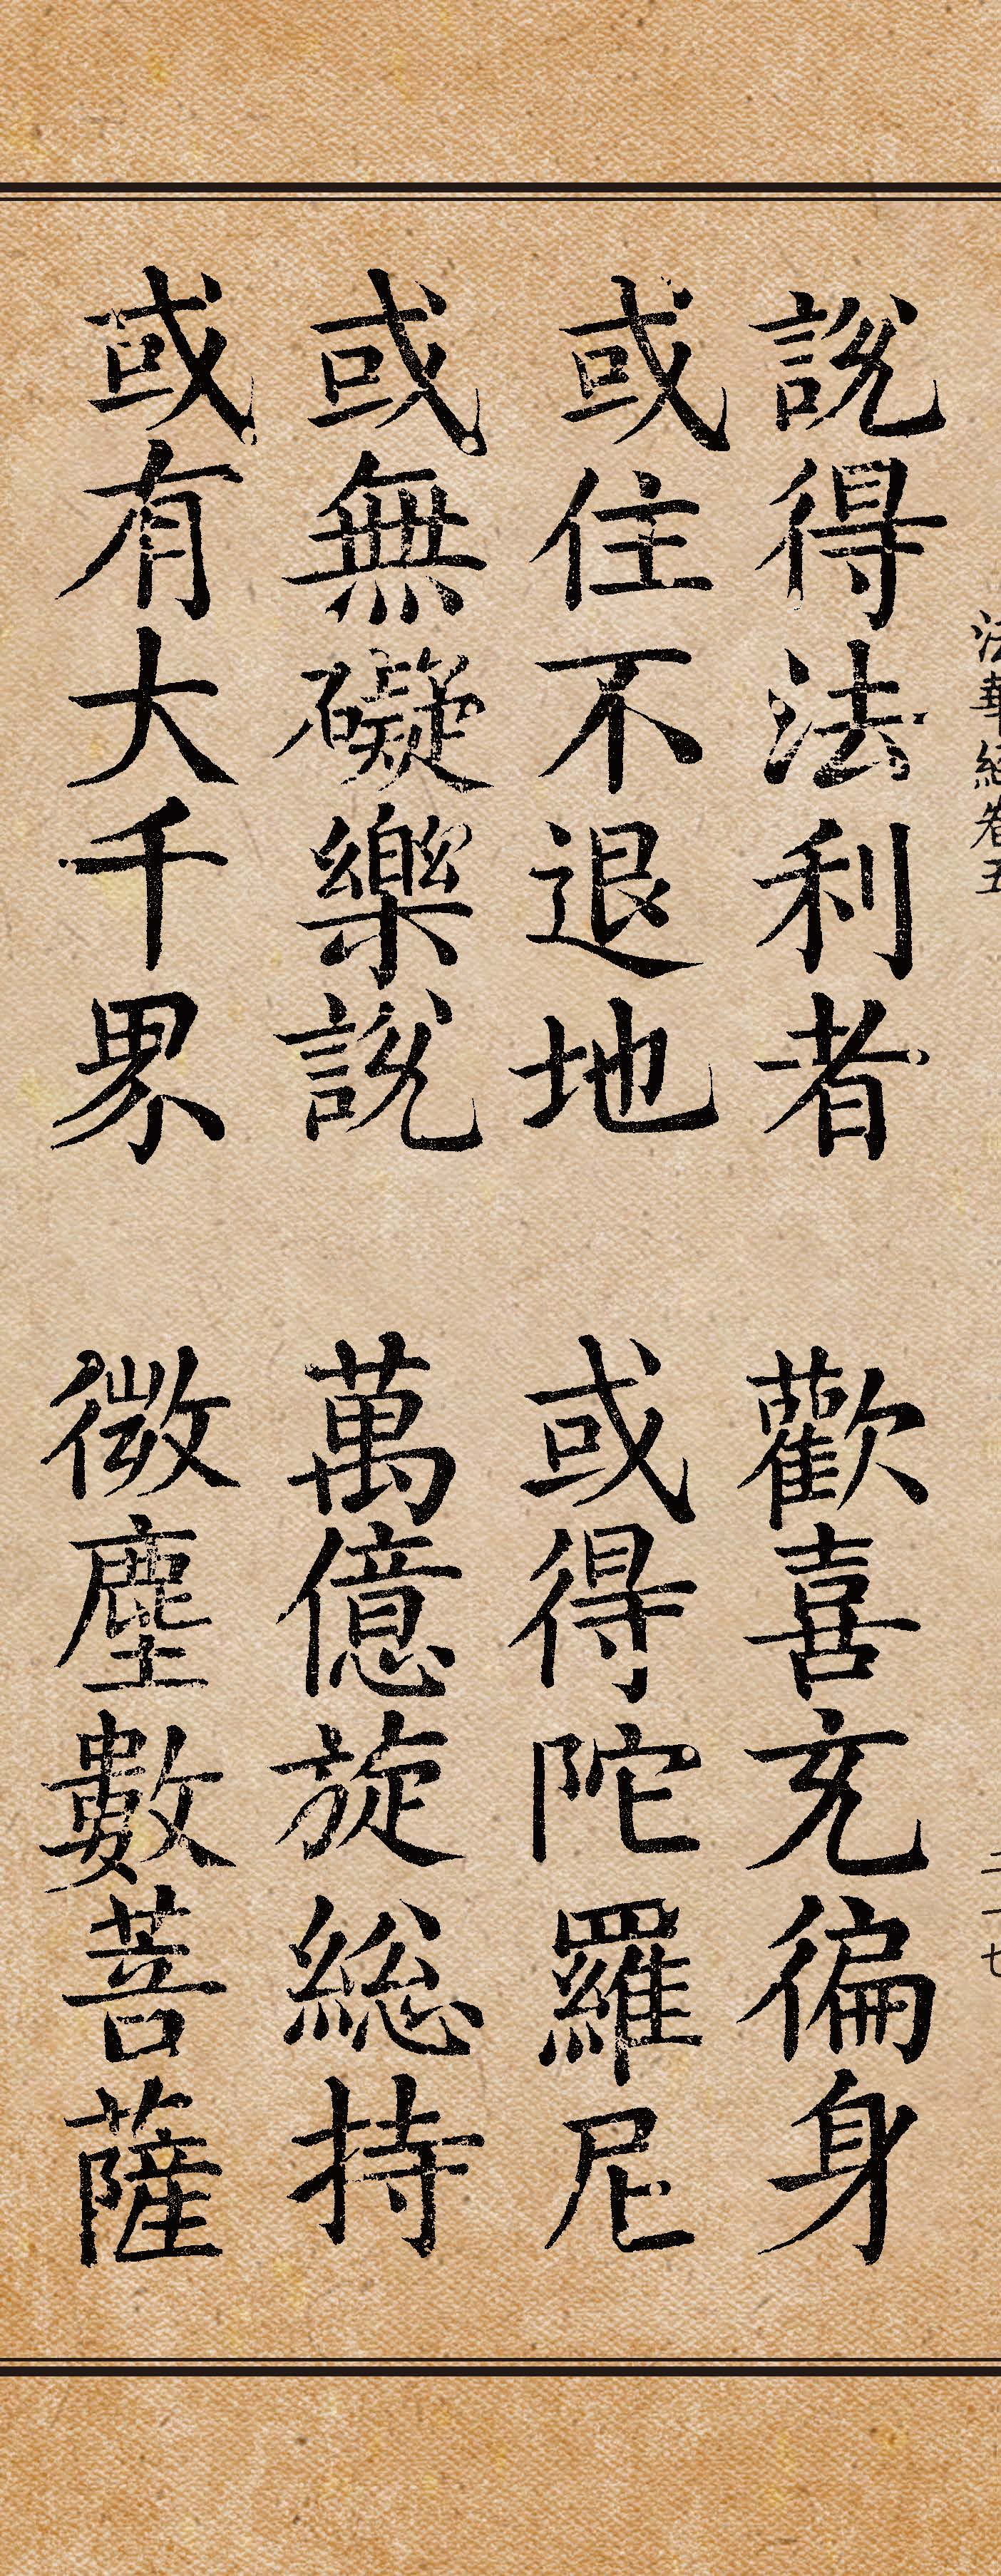 法華經卷五
二一七
説得法利者 歡喜充徧身
或住不退地 或得陀羅尼
或無礙樂説 萬億旋総持
或有大千界 微塵數菩薩